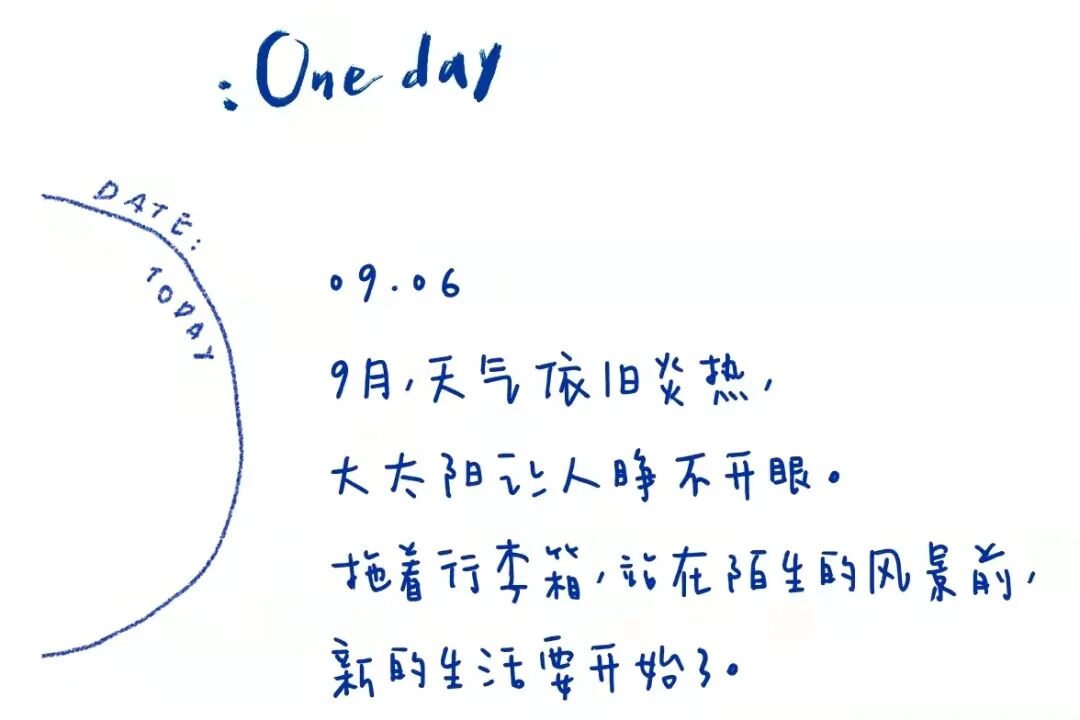 : One day
DATE:
TODAY
09.06
9月,天气依旧炎热,
大太阳让人睁不开眼。
拖着行李箱,站在陌生的风景前,
新的生活要开始了。